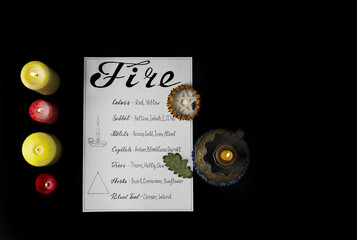 Fire
Colors - Red, Yellow
Sabbat - Beltane, Imbolc, Litha
Metals - Brass, Gold, Iron, Steel
Crystals - Amber, Moonstone, Garnet
Trees - Thorn, Holly, Oak
Herbs - Basil, Cinnamon, Sunflower
Ritual Tool - Censer, Wand